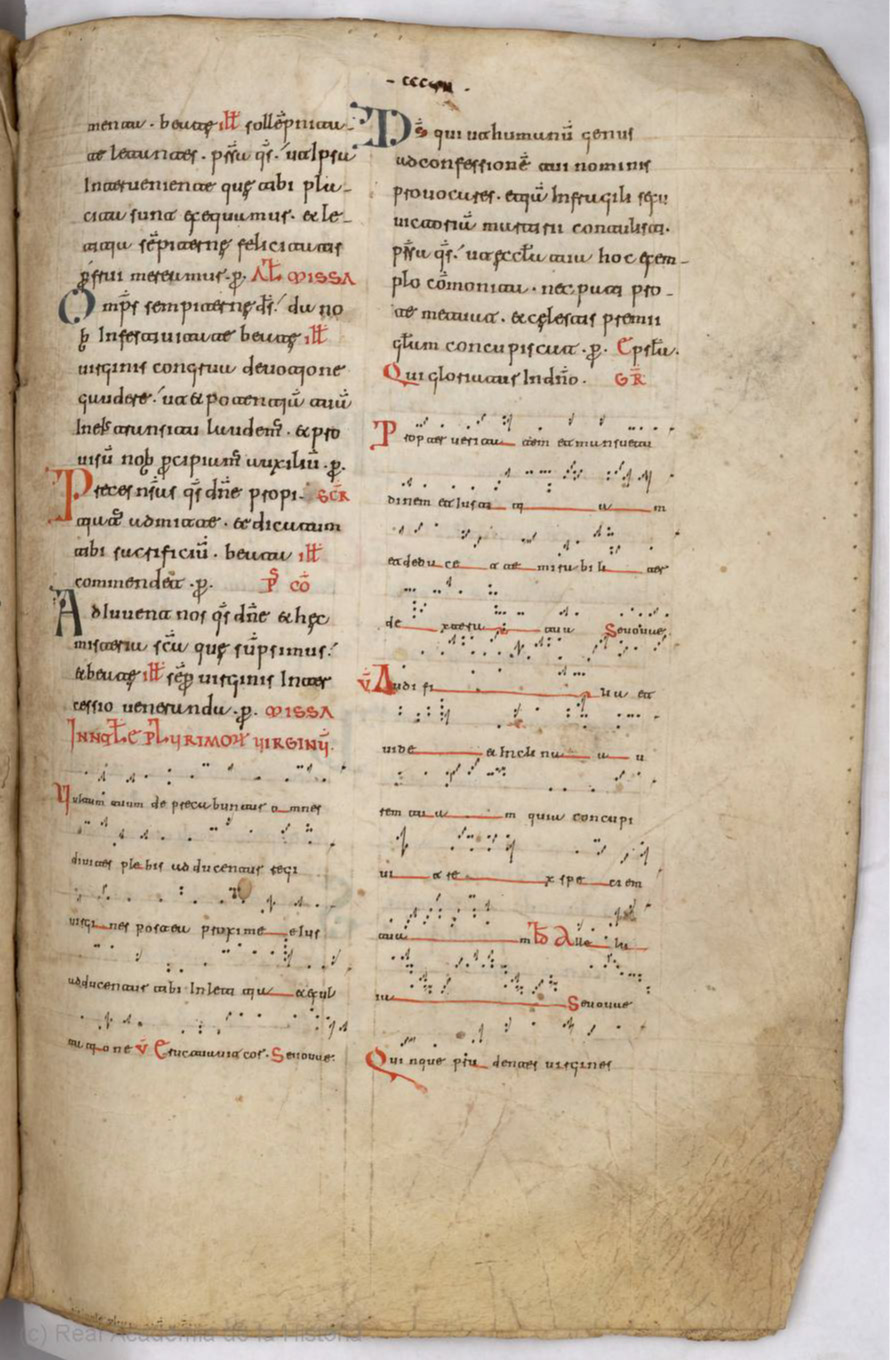 - cccvii -
menta . beatę ill sollẽpnita-
te letantes . pssa qs. ut ipsa
Interveniente quę tibi pla-
cita sunt exequamur. et le-
titia sẽpiternę felicitatis
pfrui mereamur. p. Alt missa
Omps sempiternę ds. da no
b In festivitate beatę ill
virginis congrua devotione
gaudere. ut et potentiã tuã
In eius transita laudem. et pro
visũ nob pcipiam auxiliũ. p.
Preces nras qs dne propi- scr
tiat admitte. et dicatum
tibi sacrificiũ. beata ill
commendet. p. P cõ
Adiuvent nos qs dne et hęc
misteria scã quę sũpsimus.
et beatę ill sẽp virginis Inter
cessio veneranda. p. missa
In natle plurimoꝝ virginũ.
Vultum tuum de precabuntur omnes
divites plebis adducentur regi
virgines postea proxime eius
adducentur tibi In leti tia et exul
ta tione V̄ Eructavit cor. Sevovae
Ds qui ut humanũ genus
ad confessionẽ tui nominis
provocares. etiã In fragili sexu
victoriã martirii contulisti.
pssa qs. ut ęccla tua hoc exem-
plo cõmonita. nec pati pro
te metuat. et cęlestis premii
glam concupiscat. p. Epsla.
Qui gloriatur In dño. GR
Propter verita tem et mansuetu
dinem et iusti ti a m
et deduce t te mirabili ter
dex tera tua Sevovae
V̄ Audi fi lia et
vide et Inclina a u
rem tu a m quia concupi
vi t re x spe ciem
tua m Ꞇb Alle lu
ia Sevovae
Qui nque pru dentes virgines